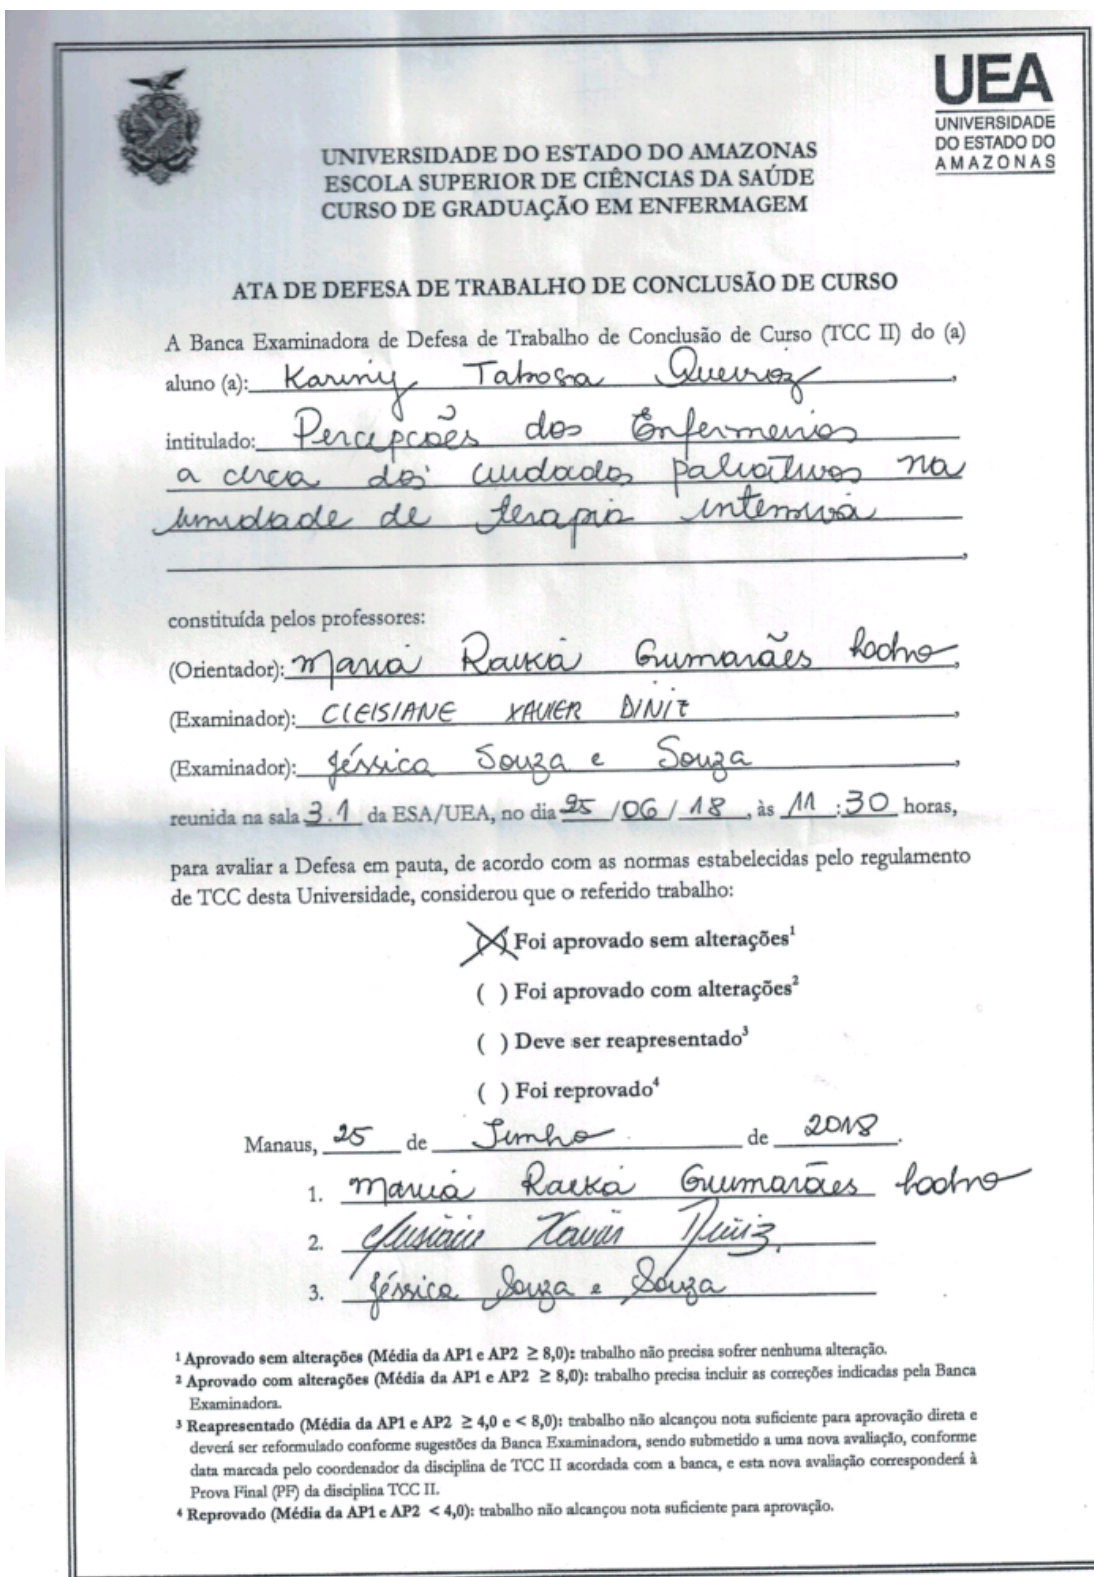 UEA
UNIVERSIDADE
DO ESTADO DO
AMAZONAS
UNIVERSIDADE DO ESTADO DO AMAZONAS
ESCOLA SUPERIOR DE CIÊNCIAS DA SAÚDE
CURSO DE GRADUAÇÃO EM ENFERMAGEM
ATA DE DEFESA DE TRABALHO DE CONCLUSÃO DE CURSO
A Banca Examinadora de Defesa de Trabalho de Conclusão de Curso (TCC II) do (a)
aluno (a): Kariny Tabosa Queiroz,
intitulado: Percepções dos Enfermeiros
a cerca dos cuidados paliativos na
unidade de terapia intensiva
,
constituída pelos professores:
(Orientador): Maria Guimarães,
(Examinador): CLEISIANE XAVIER DINIZ,
(Examinador): Jéssica Souza e Souza,
reunida na sala 3.1 da ESA/UEA, no dia 25 /06 / 18, às 11 :30 horas,
para avaliar a Defesa em pauta, de acordo com as normas estabelecidas pelo regulamento
de TCC desta Universidade, considerou que o referido trabalho:
(X) Foi aprovado sem alterações¹
( ) Foi aprovado com alterações²
( ) Deve ser reapresentado³
( ) Foi reprovado⁴
Manaus, 25 de Junho de 2018.
1. Maria Guimarães
2. Cleisiane Xavier Diniz
3. Jéssica Souza e Souza
¹ Aprovado sem alterações (Média da AP1 e AP2 ≥ 8,0): trabalho não precisa sofrer nenhuma alteração.
² Aprovado com alterações (Média da AP1 e AP2 ≥ 8,0): trabalho precisa incluir as correções indicadas pela Banca
Examinadora.
³ Reapresentado (Média da AP1 e AP2 ≥ 4,0 e < 8,0): trabalho não alcançou nota suficiente para aprovação direta e
deverá ser reformulado conforme sugestões da Banca Examinadora, sendo submetido a uma nova avaliação, conforme
data marcada pelo coordenador da disciplina de TCC II acordada com a banca, e esta nova avaliação corresponderá à
Prova Final (PF) da disciplina TCC II.
⁴ Reprovado (Média da AP1 e AP2 < 4,0): trabalho não alcançou nota suficiente para aprovação.